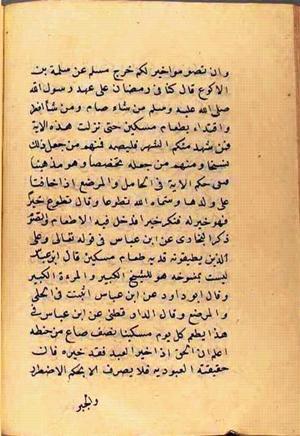 وان تصوموا خير لكم خرج مسلم عن سلمة بن
الاكوع قال كنا في رمضان على عهد رسول الله
صلى الله عليه وسلم من شاء صام ومن شا افطر
وافتدا بطعام مسكين حتى نزلت هذه الاية
فمن شهد منكم الشهر فليصمه فمنهم من جعل ذلك
نسخا ومنهم من جعله مخصصا وهو مذهبنا
حكم الاية في الحامل والمرضع اذا خافتا
على ولدها وسماه الله تطوعا وقال تطوع خيرا
فهو خير له فنكر خير فدخل فيه الاطعام والصوم
ذكر البخارى عن ابن عباس في قوله تعالى وعلى
الذين يطيقونه فديه طعام مسكين قال ابن عباس
ليست بمنسوخه هو للشيخ الكبير والمرءة الكبير
وقال ابو داود عن ابن عباس اثبتت في الحبلى
والمرضع وقال الدار قطني عن ابن عباس في
هذا يطعم كل يوم مسكينا نصف صاع من حنطه
اعلم ان الحق اذا خير العبد فقد حيره فان
حقيقته العبوديه فلا يصرف الا بحكم الاضطرار
والجبر